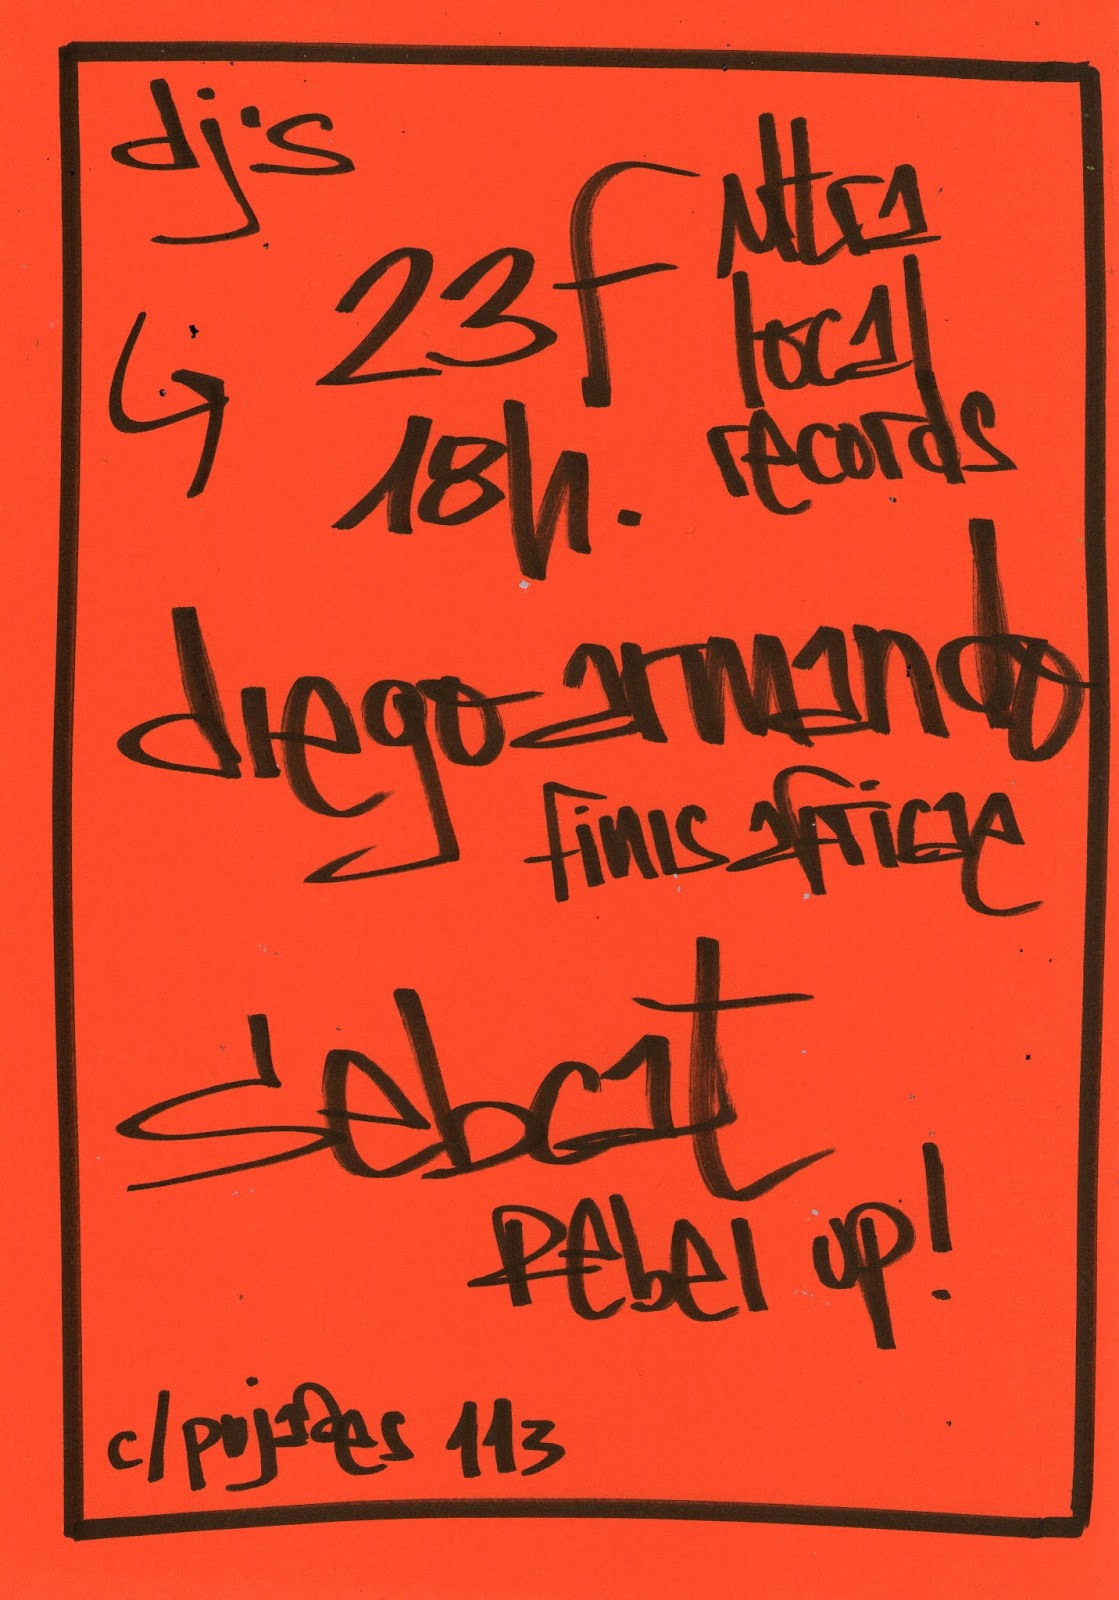 dj's
23f
18h.
ultra
local
records
diego armando
finis africae
sebcat
rebel up!
c/pujades 113